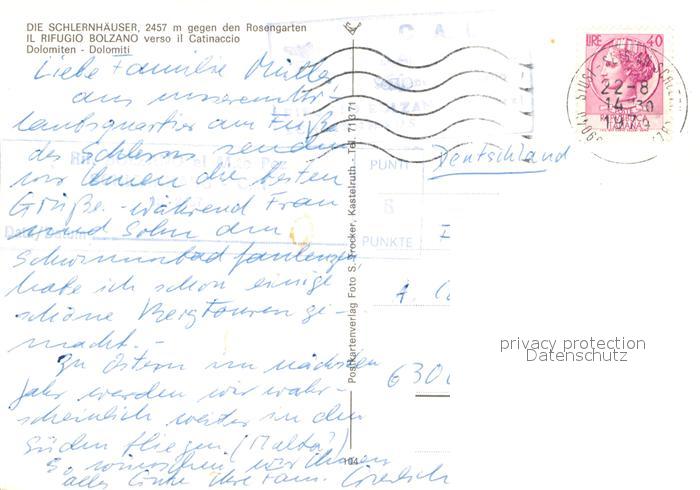 DIE SCHLERNHÄUSER, 2457 m gegen den Rosengarten
IL RIFUGIO BOLZANO verso il Catinaccio
Dolomiten - Dolomiti
Liebe Familie Müller
aus unserem Ur-
laubsquartier am Fuße
des Schlerns senden
wir Ihnen die besten
Grüße. Während Frau
und Sohn im
Schwimmbad faulenzen
habe ich schon einige
schöne Bergtouren ge-
macht. -
Zu Ostern im nächsten
Jahr werden wir wahr-
scheinlich weiter in den
Süden fliegen. (Malta)
So wünschen wir Ihnen
alles Gute Ihre Fam.
104
Postkartenverlag Foto S. Brocker, Kastelruth - Tel. 71371
PUNTI
PUNKTE
LIRE 40
22-8
14-30
1974
Deutschland
A.
630
privacy protection
Datenschutz